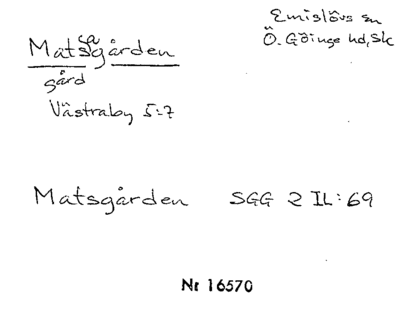 Matsagården
gård
Västraby 5:7
Emislövs sn
Ö. Göinge hd, Sk
Matsgården SGG 2 IL:69
Nr 16570